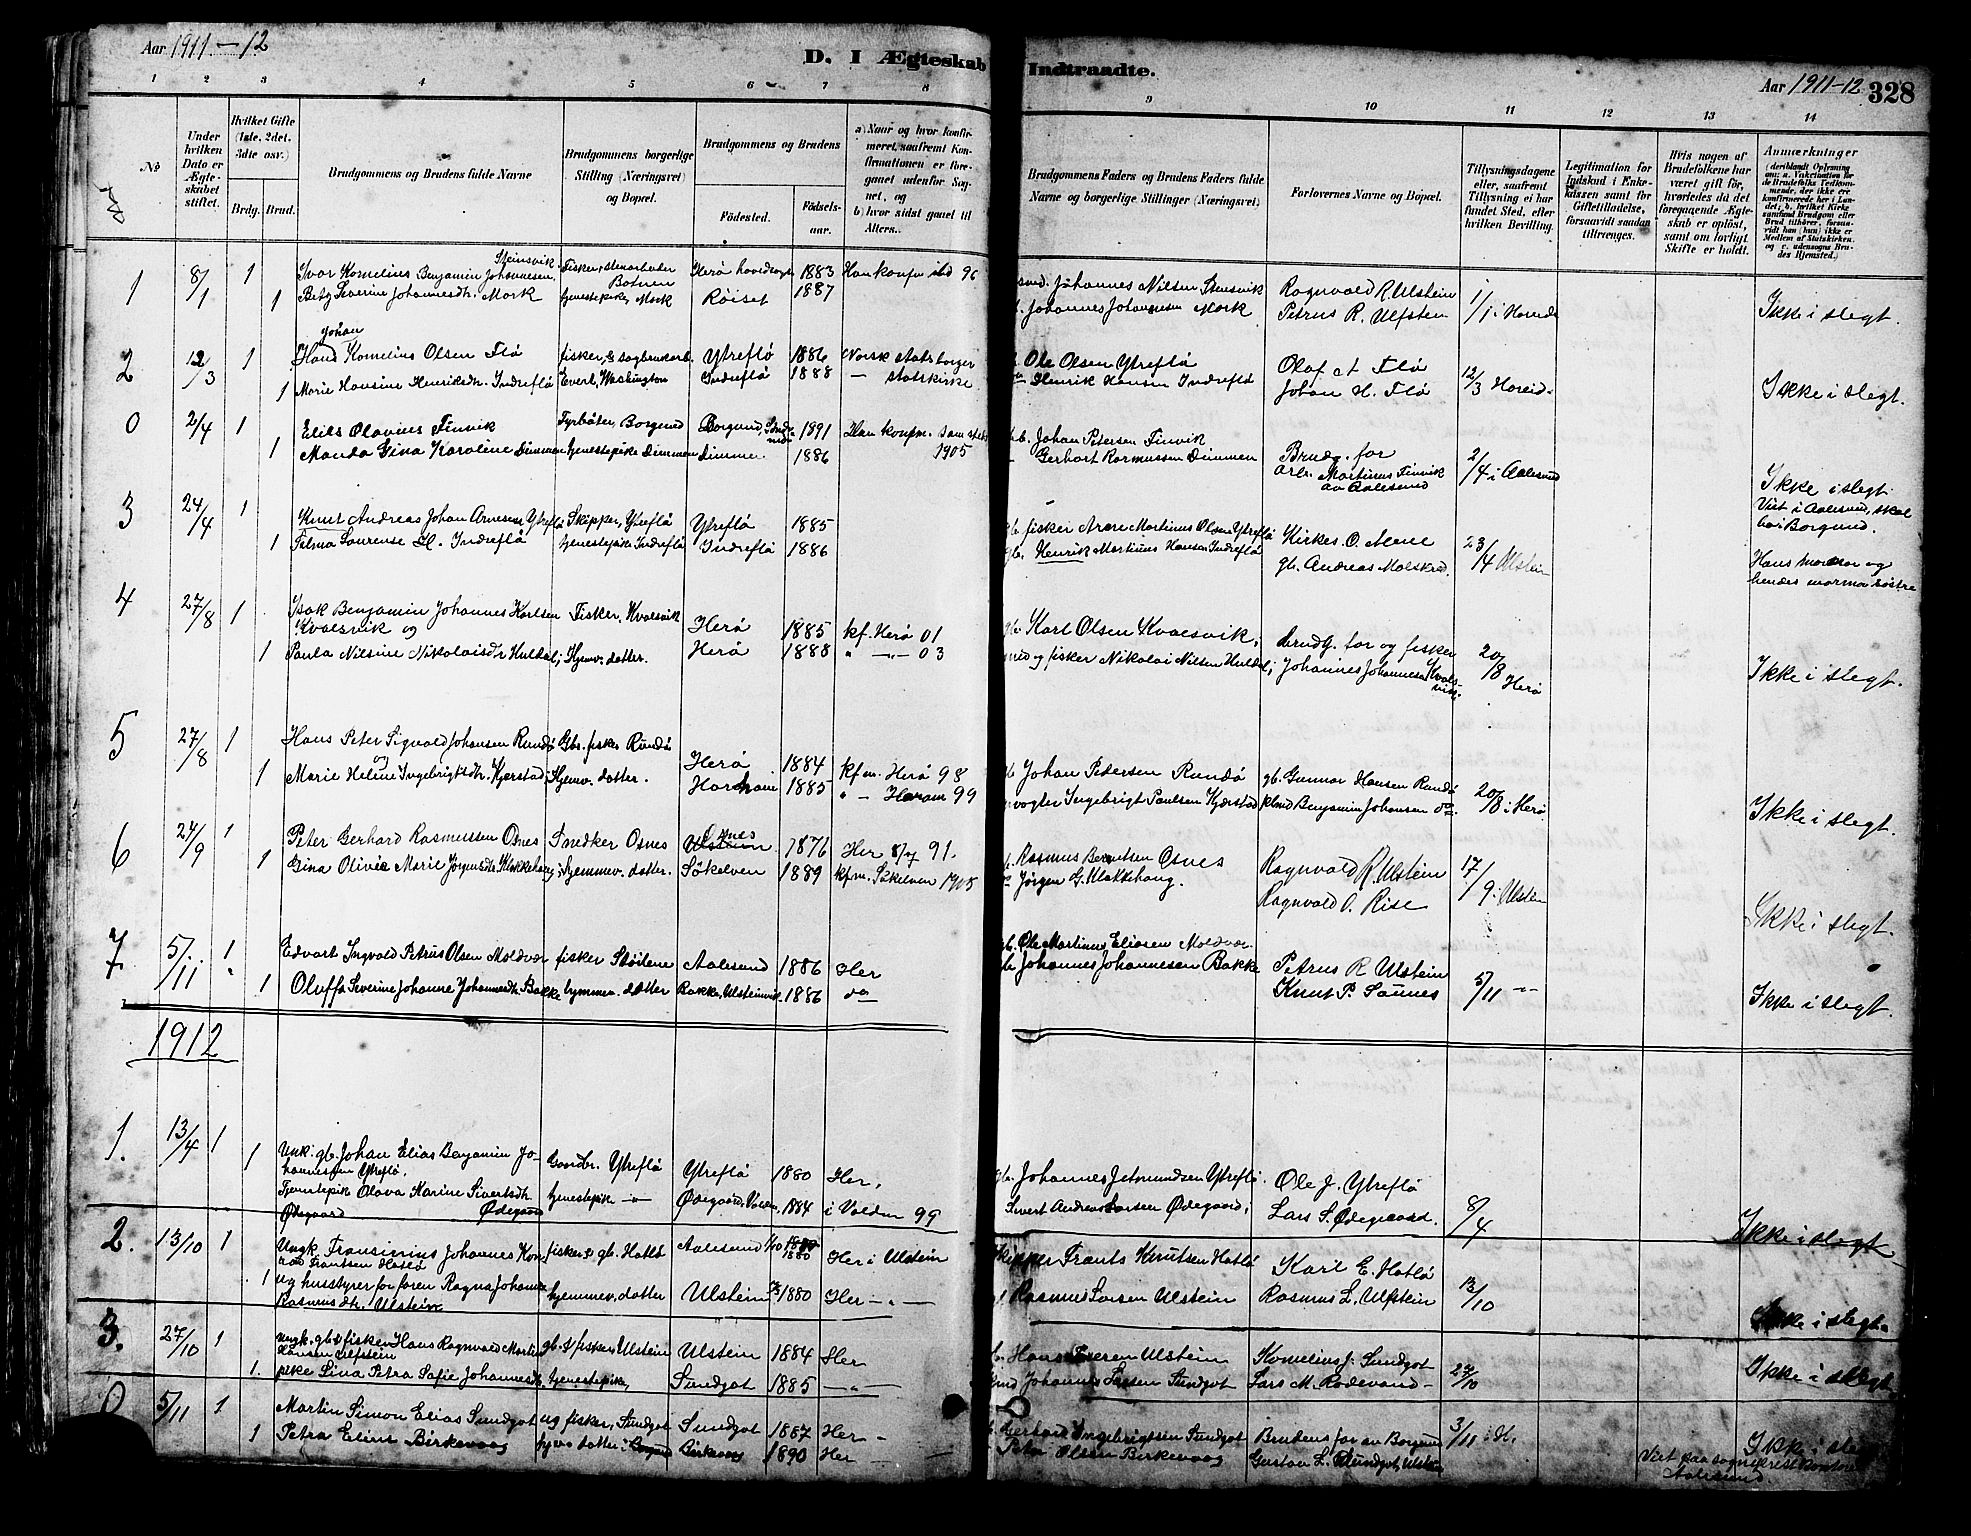 Aar 1911-12
D. I Ægteskab Indtraadte.
Aar 1911-12 328
1 2 3 4 5 6 7 8 9 10 11 12 13 14
No
Under hvilken Dato er Ægteskabet stiftet.
Hvilket Gifte (1ste, 2det, 3die osv.)
Brdg. Brud.
Brudgommens og Brudens fulde Navne
Brudgommens borgerlige Stilling (Næringsvei) og Bopæl.
Brudgommens og Brudens
Fødested. Fødselsaar.
a) Naar og hvor konfirmeret, saafremt Konfirmationen er foregaaet udenfor Sognet, og
b) hvor sidst gaaet til Alters.
Brudgommens Faders og Brudens Faders fulde Navne og borgerlige Stillinger (Næringsvei)
Forlovernes Navne og Bopæl.
Tillysningsdagene eller, saafremt Tillysning ei har fundet Sted, efter hvilken Bevilling.
Legitimation for Indskud i Enkekassen samt for Giftetilladelse, forsaavidt saadan tiltrænges.
Hvis nogen af Brudefolkene har været gift før, hvorledes da det foregaaende Ægteskab er opløst, samt om lovligt Skifte er holdt.
Anmærkninger
1 8/1 1 Ivar Kornelius Benjamin Johannesen Steinsvik Fisker, stenarbeider Botnen Herø 1883 Han konfm ibd 96
1 Betzy Severine Johannesdtr. Mork tjenestepike, Mork Røiset 1887
Johannes Nilsen Stensvik Ragnvald R. Ulstein 1/1 i Hareide Ikke i slegt.
Johannes Johannesen Mork Petrus R. Ulfsten
2 12/3 1 Hans Johan Kornelius Olsen Flø fisker & sagbruksarb. Ytreflø 1886 Norsk statsborger
1 Marie Hansine Henriksdtr. Indreflø Everet, Washington Indreflø 1888 — statskirke
Ole Olsen Ytreflø Olaf A Flø 12/3 Hareid. Ikke i slegt.
Henrik Hansen Indreflø Johan H. Flø
0 2/4 1 Elias Olavius Finvik Fyrbøter, Borgund Borgund, 1891 Han konfm. samsteds 1905
1 Manda Gina Karoline Dimmen tjenestepike Dimmen Dimmen 1886
Johan Petersen Finvik Brudg. for 2/4 i Aalesund Ikke i slegt.
Gerhart Rasmussen Dimmen Arb. Martinus Finvik av Aalesund
Viet i Aalesund, skal bo i Borgund.
3 24/4 1 Knut Andreas Johan Arnesen Ytreflø Skipper, Ytreflø Ytreflø 1885
1 Telma Laurense H. Indreflø tjenestepike Indreflø Indreflø 1886
gb. fisker Arne Martinus Olsen Ytreflø Kirkes. O. Mene 23/4 Ulstein
gb. Henrik Martinus Hansen Indreflø gb. Andreas Malskred
Hans mormor og hendes mormor søstre
4 27/8 1 Isak Benjamin Johannes Karlsen Kvalsvik og Fisker, Kvalsvik Herø 1885 kf. Herø 01
1 Paula Nilsine Nikolaisdtr Huldal, Hjemv. datter. Herø 1888 " — " — 03
gb. Karl Olsen Kvalsvik, brudg. for og fisker 20/8 Herø
og fisker Nikolai Nilsen Huldal, Johannes Johannesen Kvalsvik. Ikke i slegt.
5 27/8 1 Hans Peter Sigvald Johansen Rundø Gbr. fisker Rundø Herø 1884 kfm. Herø 98
1 Marie Helene Ingebrigtsdtr. Kjerstad Hjemv. datter. Haram 1885 " — Haram 99
gb Johan Pedersen Rundø gb. Gunnar Hansen Rundø 20/8 i Herø
vogter Ingebrigt Paulsen Kjerstad Benjamin Johansen do Ikke i slegt.
6 24/9 1 Peter Gerhard Rasmussen Osnes Snedker Osnes Osnes 1876 Her 8/7 91.
1 Gina Olivie Marie Jørgensdtr. Klokkehaug hjemmev. datter. Søkelven 1889 kfm. Søkelven 1905
Rasmus Berntsen Osnes Ragnvald R. Ulstein 17/9 i Ulstein
Jørgen G. Klokkehaug. Ragnvald O. Rise Ikke i slegt.
7 5/11 1 Edvart Ingvald Petrus Olsen Moldvær fisker Støilene Aalesund 1886 Her
1 Oluffa Severine Johanne Johannesdtr. Bakke hjemmev. datter Bakke, Ulsteinvik 1886 do
gb. Ole Martinus Eliasen Moldvær Petrus R Ulstein 5/11 "
Johannes Johannesen Bakke Knut P. Saunes Ikke i slegt.
1912
1. 13/4 1 Ungk. gb. Johan Elias Benjamin Johannessen Ytreflø, Gaardbr. Ytreflø Ytreflø 1880 Her,
1 Tjenestepik Olava Karine Sivertsdtr Ødegaard tjenestepik — " — Ødegaard, Volden, 1884 i Volden 99
gb. Johannes Jetmundsen Ytreflø. Ole J. Ytreflø 8/4
Sivert Andreas Larsen Ødegaard, Lars S. Ødegaard. Ikke i slegt
2. 13/10 1 Ungk. Fransinius Johannes Konrad Frantsen Hatlø fisker & gb. Hatlø Aalesund 1880 Her i Ulstein
1 og husstyrer for faren Ragna Johanne Rasmusdtr. Ulstein hjemmev. datter Ulstein 1880 Her — " —
skipper Frants Knutsen Hatlø Karl E. Hatlø 13/10
Rasmus Larsen Ulstein Rasmus L. Ulfstein Ikke i slegt.
3. 27/10 1 Ungk. gb & fisker Hans Ragnvald Martin Hansen Ulfstein gb. & fisker, Ulstein Ulstein 1884 Her
1. pike Lina Petra Sofie Johannesdtr. tjenestepike, Sundgot 1885 — " —
Hans Iversen Ulstein Kornelius J. Sundgot 27/10 Ikke i slegt
Johannes Larsen Sundgot Lars M. Rødevand
0 5/11 1 Martin Simon Elias Sundgot og fisker, Sundgot Sundgot 1887 Her
1 Petra Eline Birkevaag hjemv datter i Borgund Birkevaag 1890 Her —
Gerhard Ingebrigtsen Sundgot Brudens far av Borgund 3/11 i H. Ikke i slegt
Peter Olsen Birkevaag Gustav L. Sundgot, Ulstein
Viet paa sogneprestkontoret Aalesund